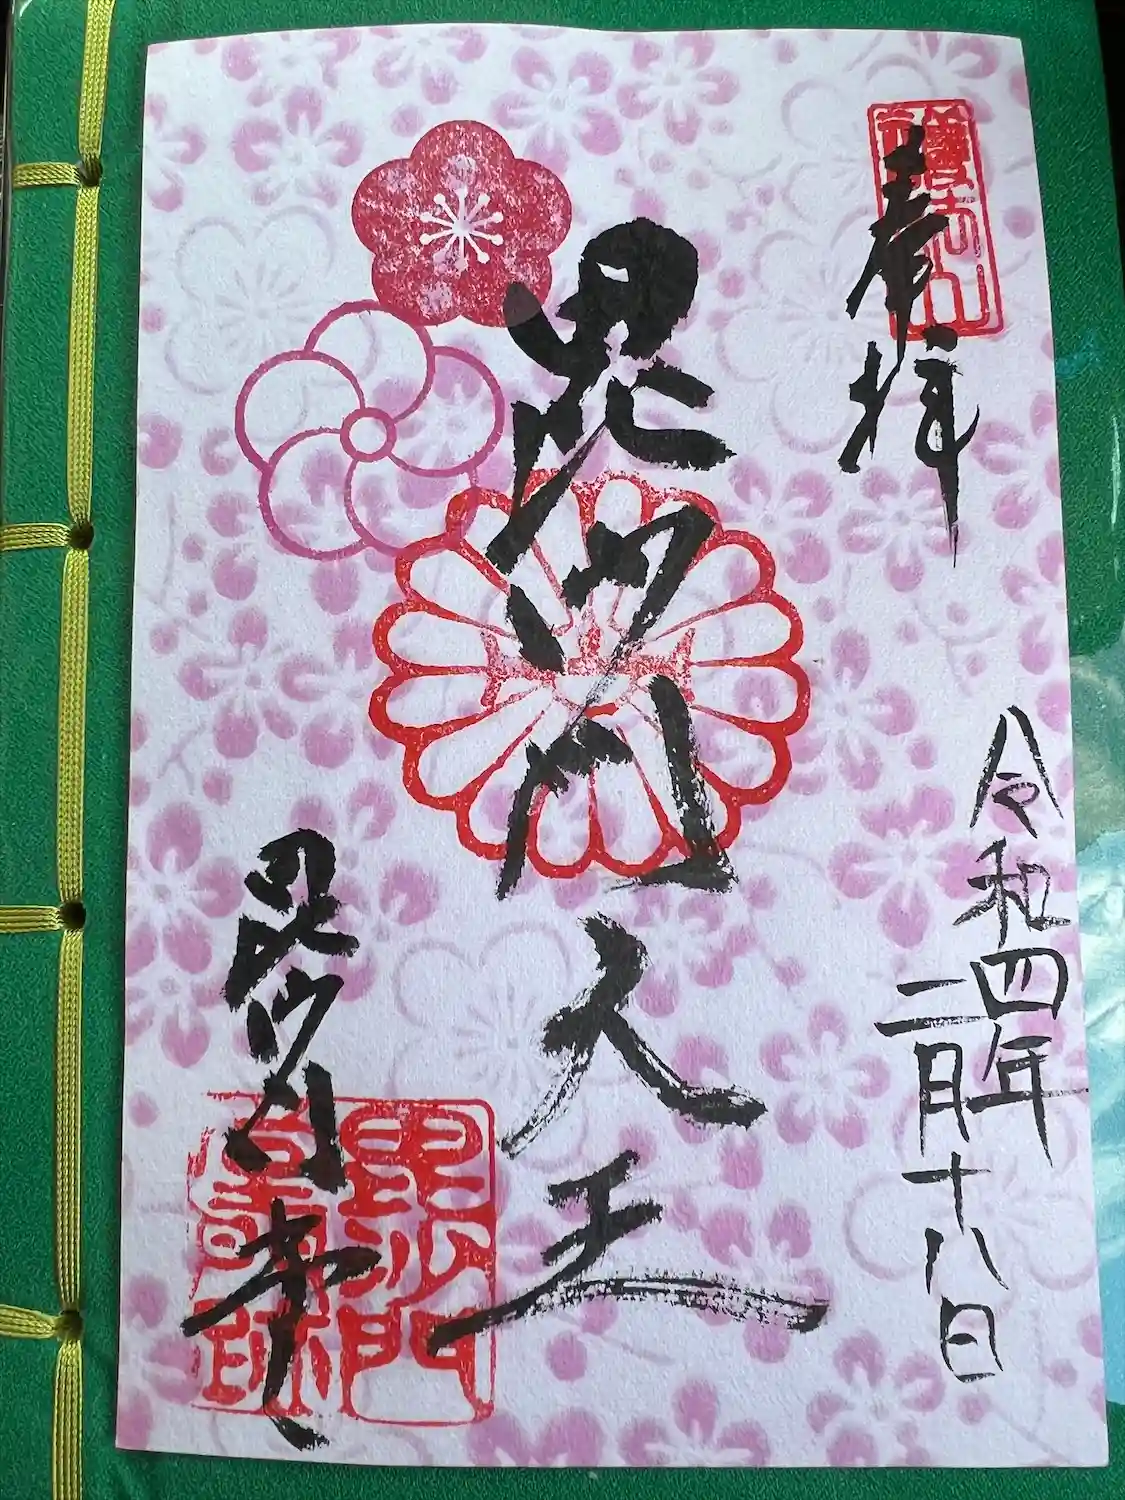 奉拝
令和四年
二月十八日
毘沙門天王
毘沙門堂
毘沙門